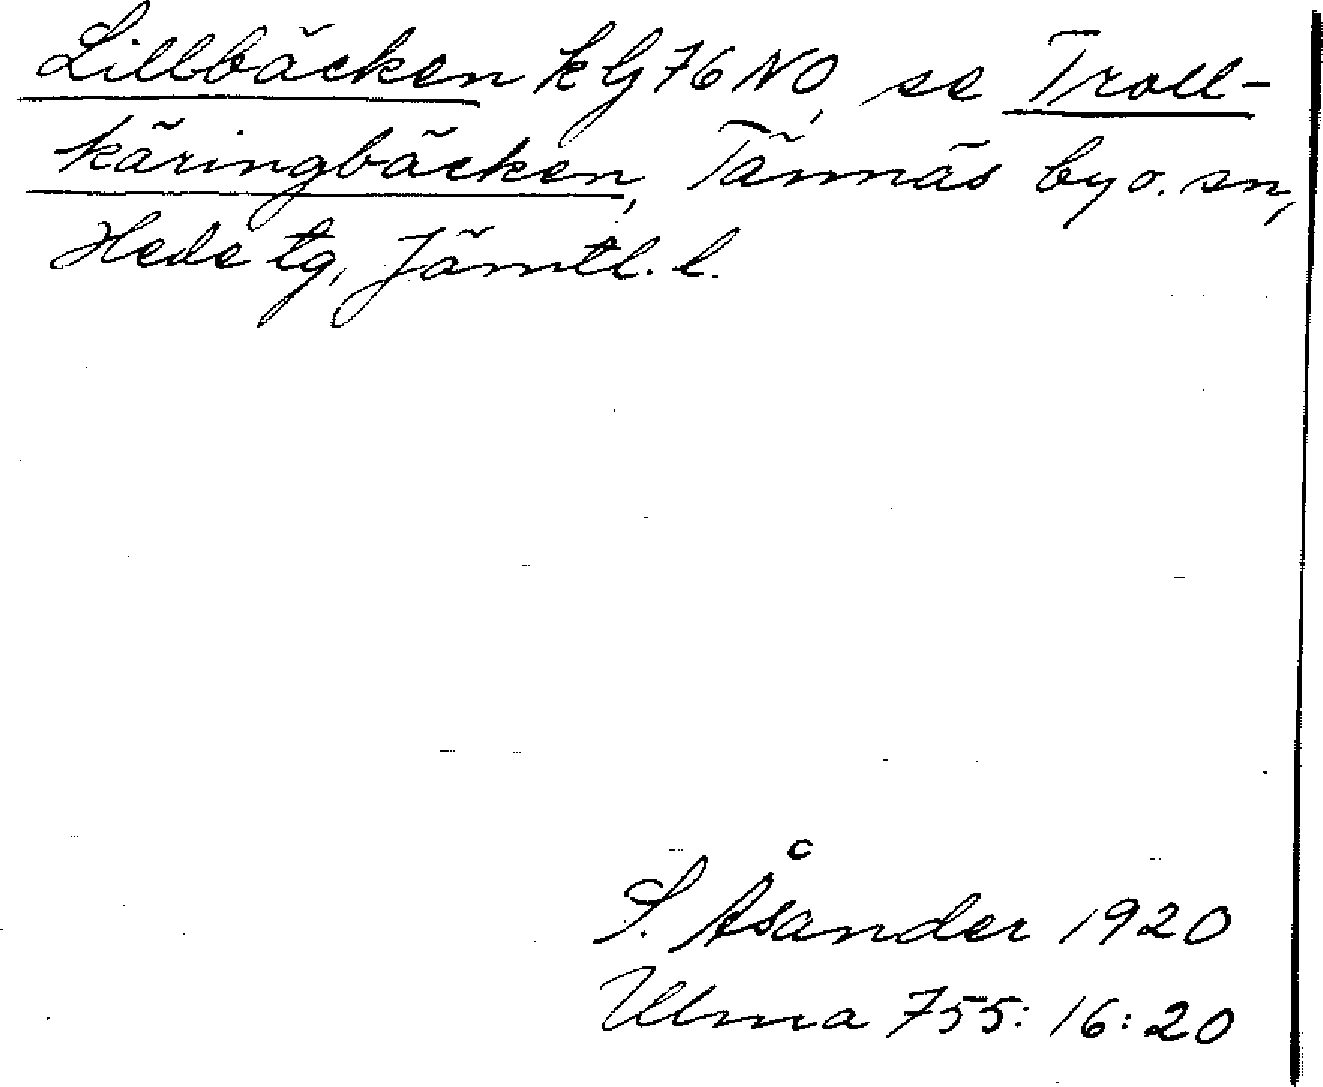 Lillbäcken k bj 76 NO, se Troll-
käringbäcken, Tännäs by o. sn,
Hede tg, Jämtl. l.
S. Åsander 1920
Ulma 755:16:20